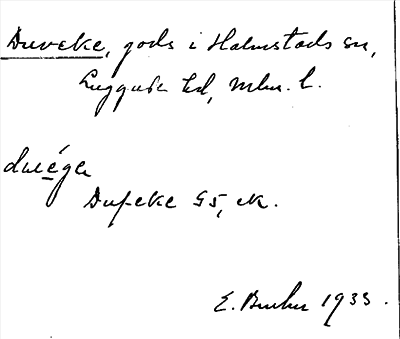 Duveke, gods i Halmstads sn,
Luggude hd, Mlm. l.
duega
Dufeke GS, ek.
E. 1933.